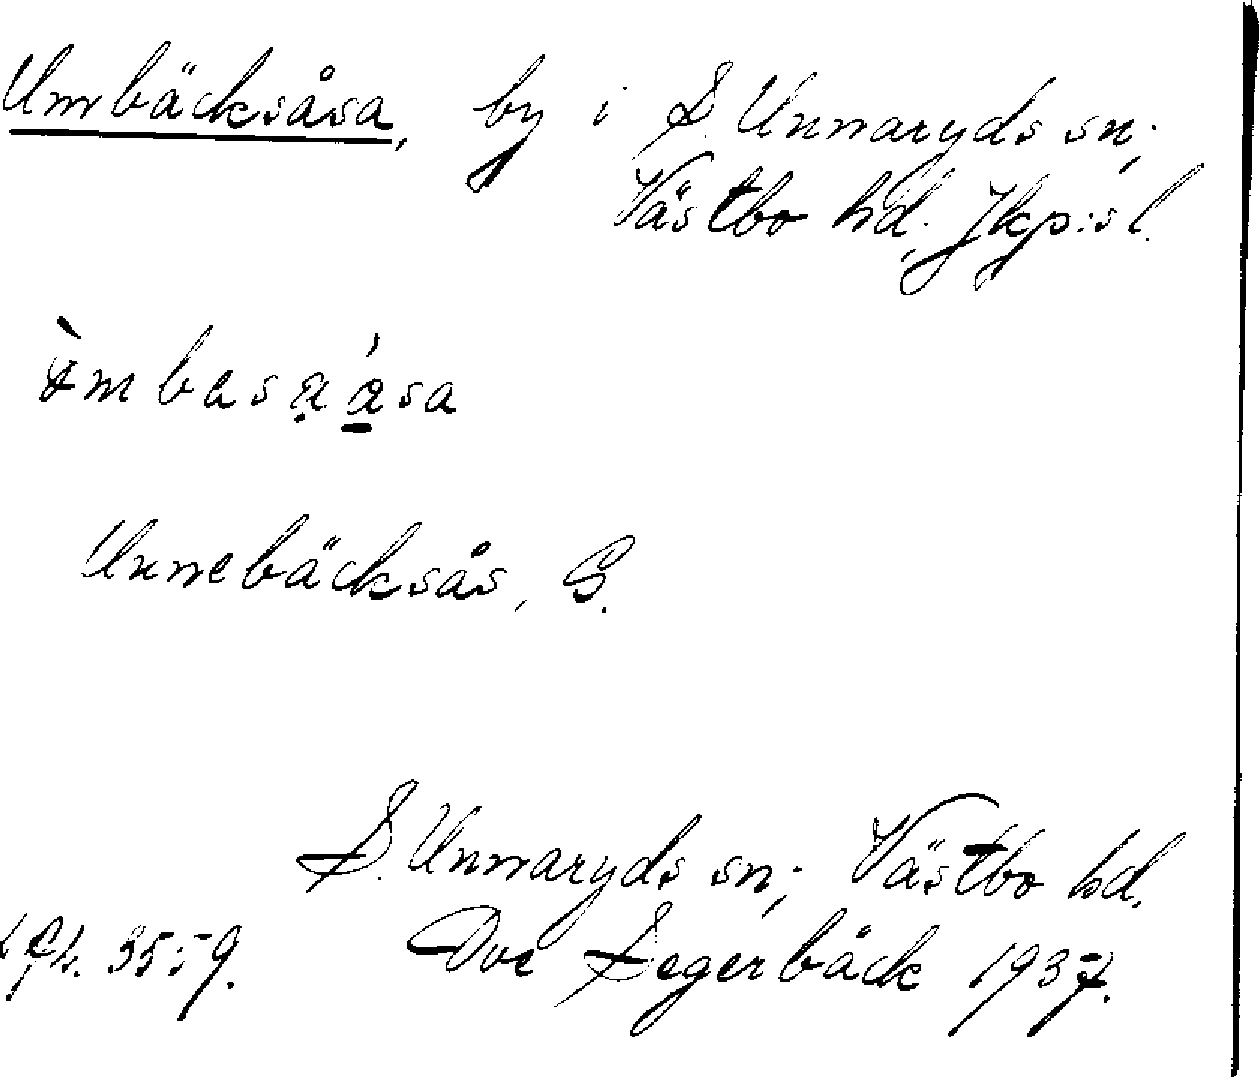 Umbäcksåsa, by i S. Unnaryds sn;
Västbo hd. Jkp:s l.
Unnebäcksås, S.
S. Unnaryds sn; Västbo hd.
3559. Ove Segerbäck 1937.